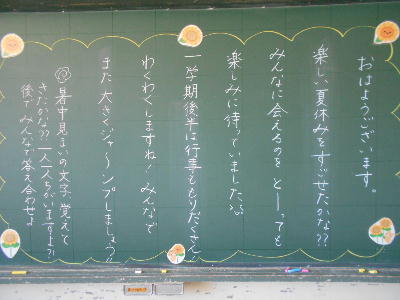 おはようございます。
楽しい夏休みをすごせたかな??
みんなに会えるのを とーっても
楽しみに待っていました。
一学期後半は行事ももりだくさん
わくわくしますね!みんなで
また大きくジャ〜ンプしましょう!!
暑中見まいの文字 覚えて
きたかな??一人一人ちがいますよ?!
後でみんなで答え合わせよ